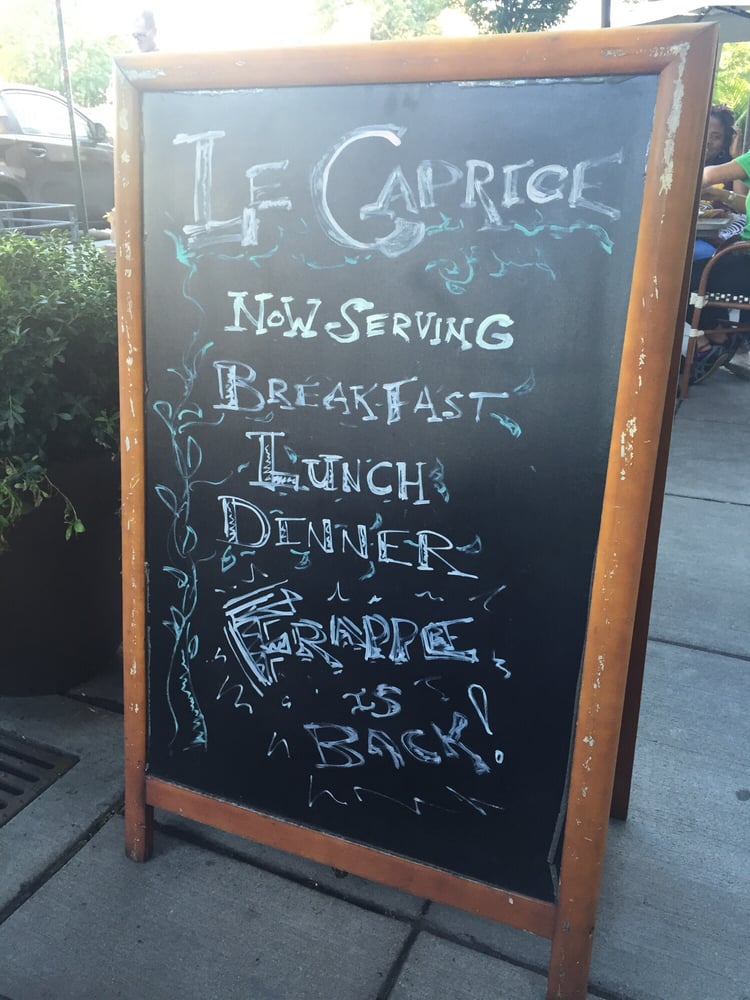 LE CAPRICE
NOW SERVING
BREAKFAST
LUNCH
DINNER
FRAPPE
IS
BACK!